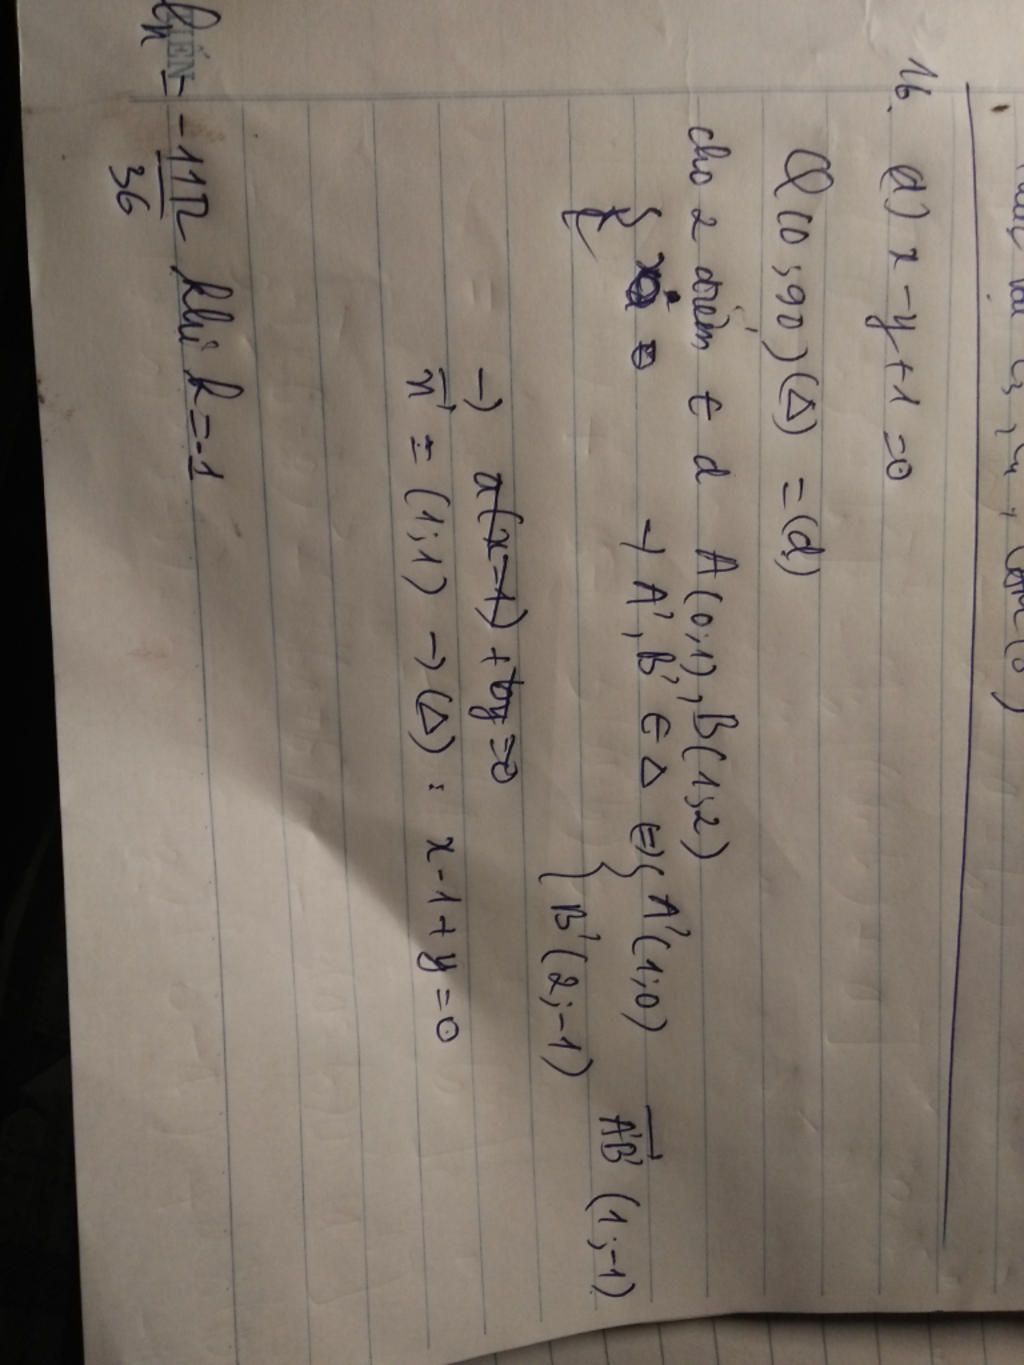 16. a) x - y + 1 = 0
Q(O; 90)(Δ) = (d)
cho 2 điểm ∈ d A(0;1), B(1;2)
→ A', B' ∈ Δ ⇔ { A'(1;0)
B'(2;-1)
A'B' (1;-1)
→ a(x-1) + by = 0
n = (1;1) → (Δ) : x - 1 + y = 0
= -11π/36 khi k = -1